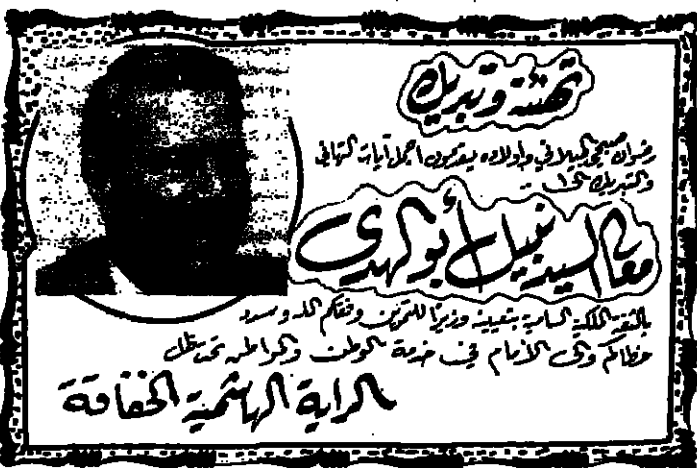 تهنئة وتبريك
رضوان صبحي واولاده يتقدمون اجمل آيات التهاني
والتبريك الى ..
معالي السيد نبيل أبو الهدى
بالثقة الملكية السامية بتعيينه وزيرا للتموين وفقكم الله وسدد
خطاكم والى الأمام في خدمة الوطن والمواطن تحت ظل
الراية الهاشمية الخفاقة